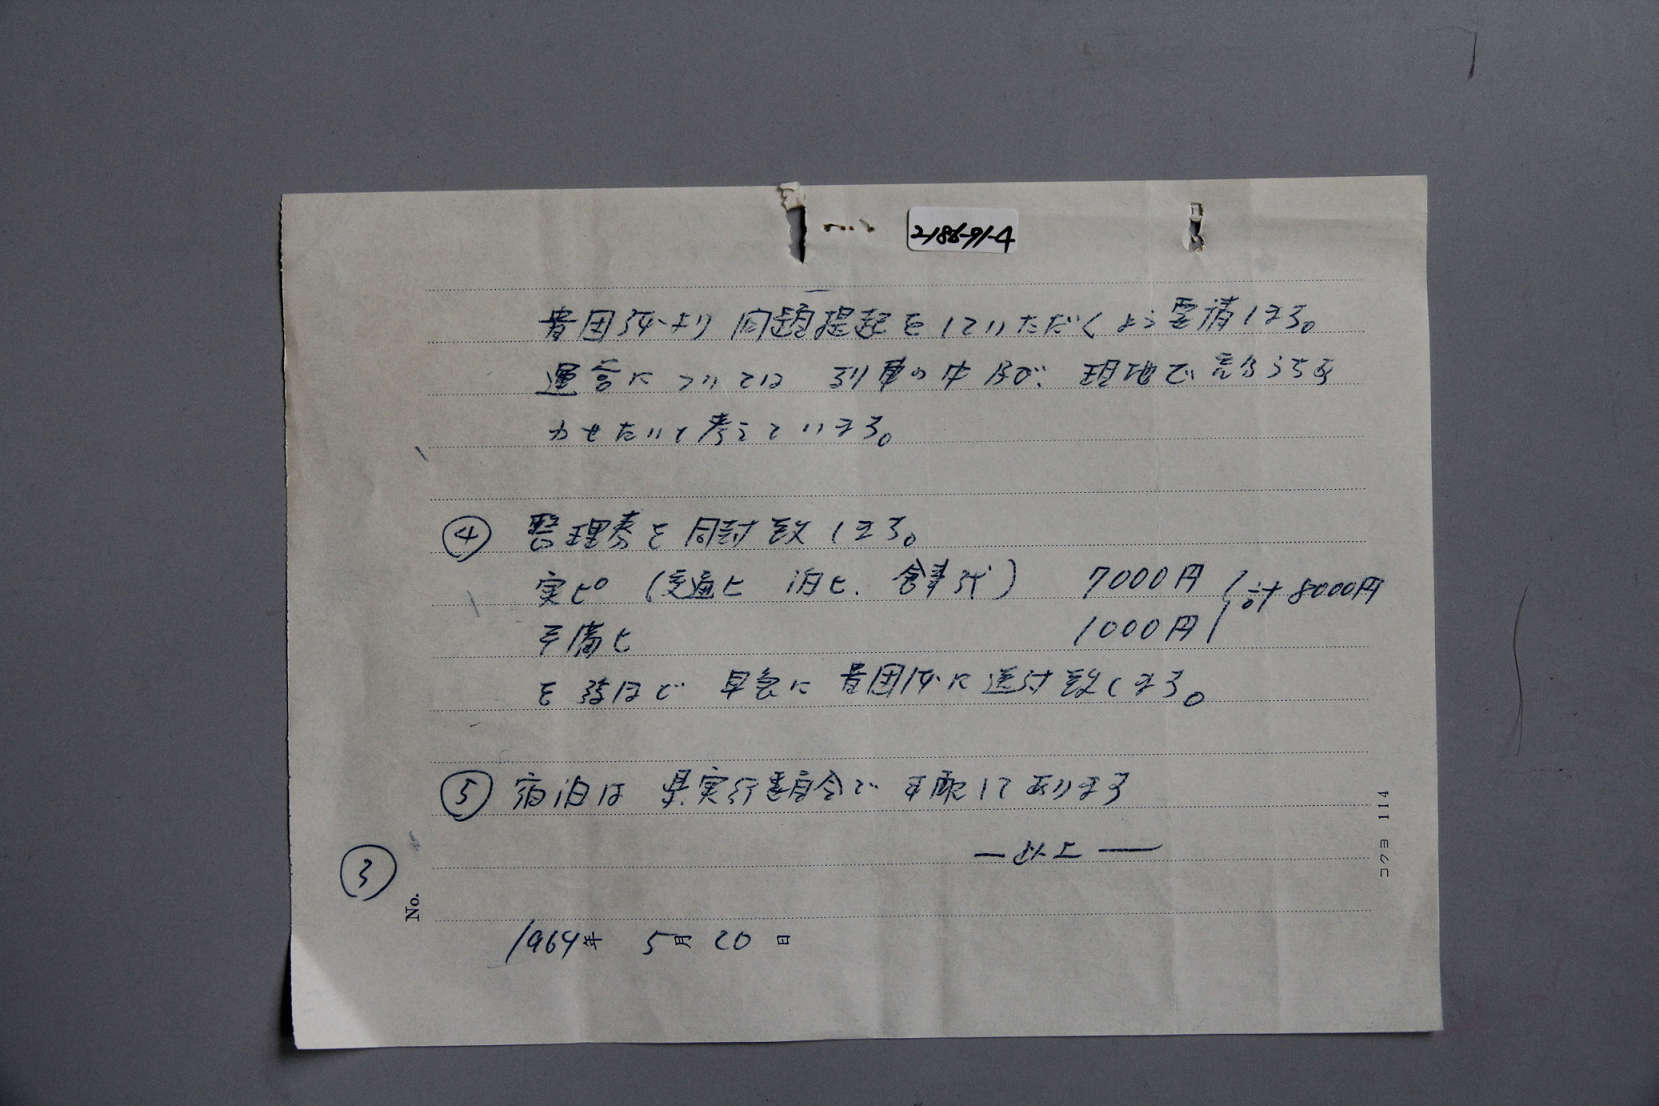 2186-91-4
貴団体より問題提起をしていただくよう要請します。
運営については列車の中及び、現地で充分うちあ
わせたいと考えています。
④ 整理券を同封致します。
実ピ (交通ヒ 泊ヒ、食事代) 7000円
計8000円
準備ヒ 1000円
を 早急に貴団体に送付致します。
⑤ 宿泊は県実行委員会で手配してあります
—以上—
③
No.
1964年 5月 20日
コクヨ 114